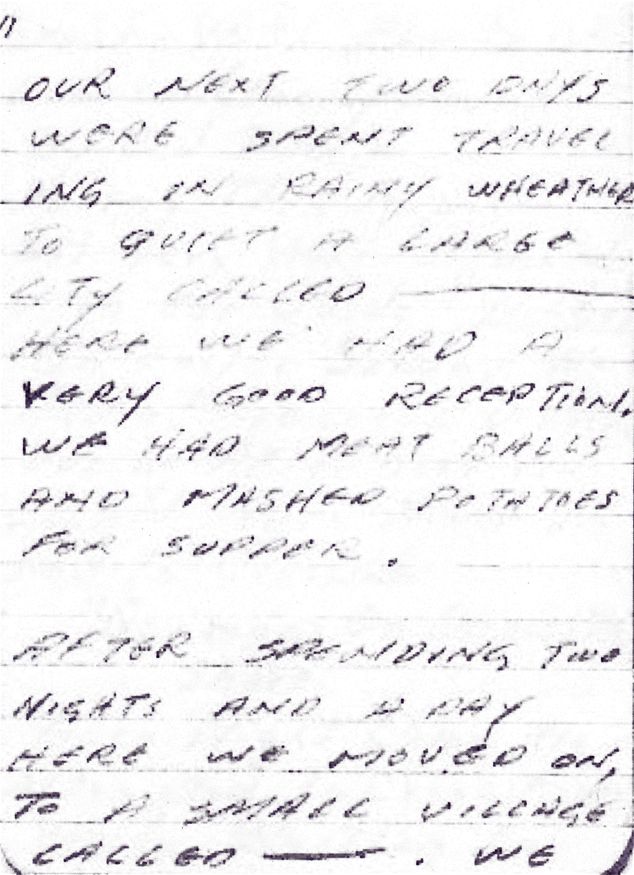 11
OUR NEXT TWO DAYS
WERE SPENT TRAVEL
ING IN RAINY WHEATHER
TO QUIET A LARGE
CITY CALLED ———
HERE WE HAD A
VERY GOOD RECEPTION.
WE HAD MEAT BALLS
AND MASHED POTATOES
FOR SUPPER.
AFTER SPENDING TWO
NIGHTS AND A DAY
HERE WE MOVED ON,
TO A SMALL VILLAGE
CALLED ———. WE